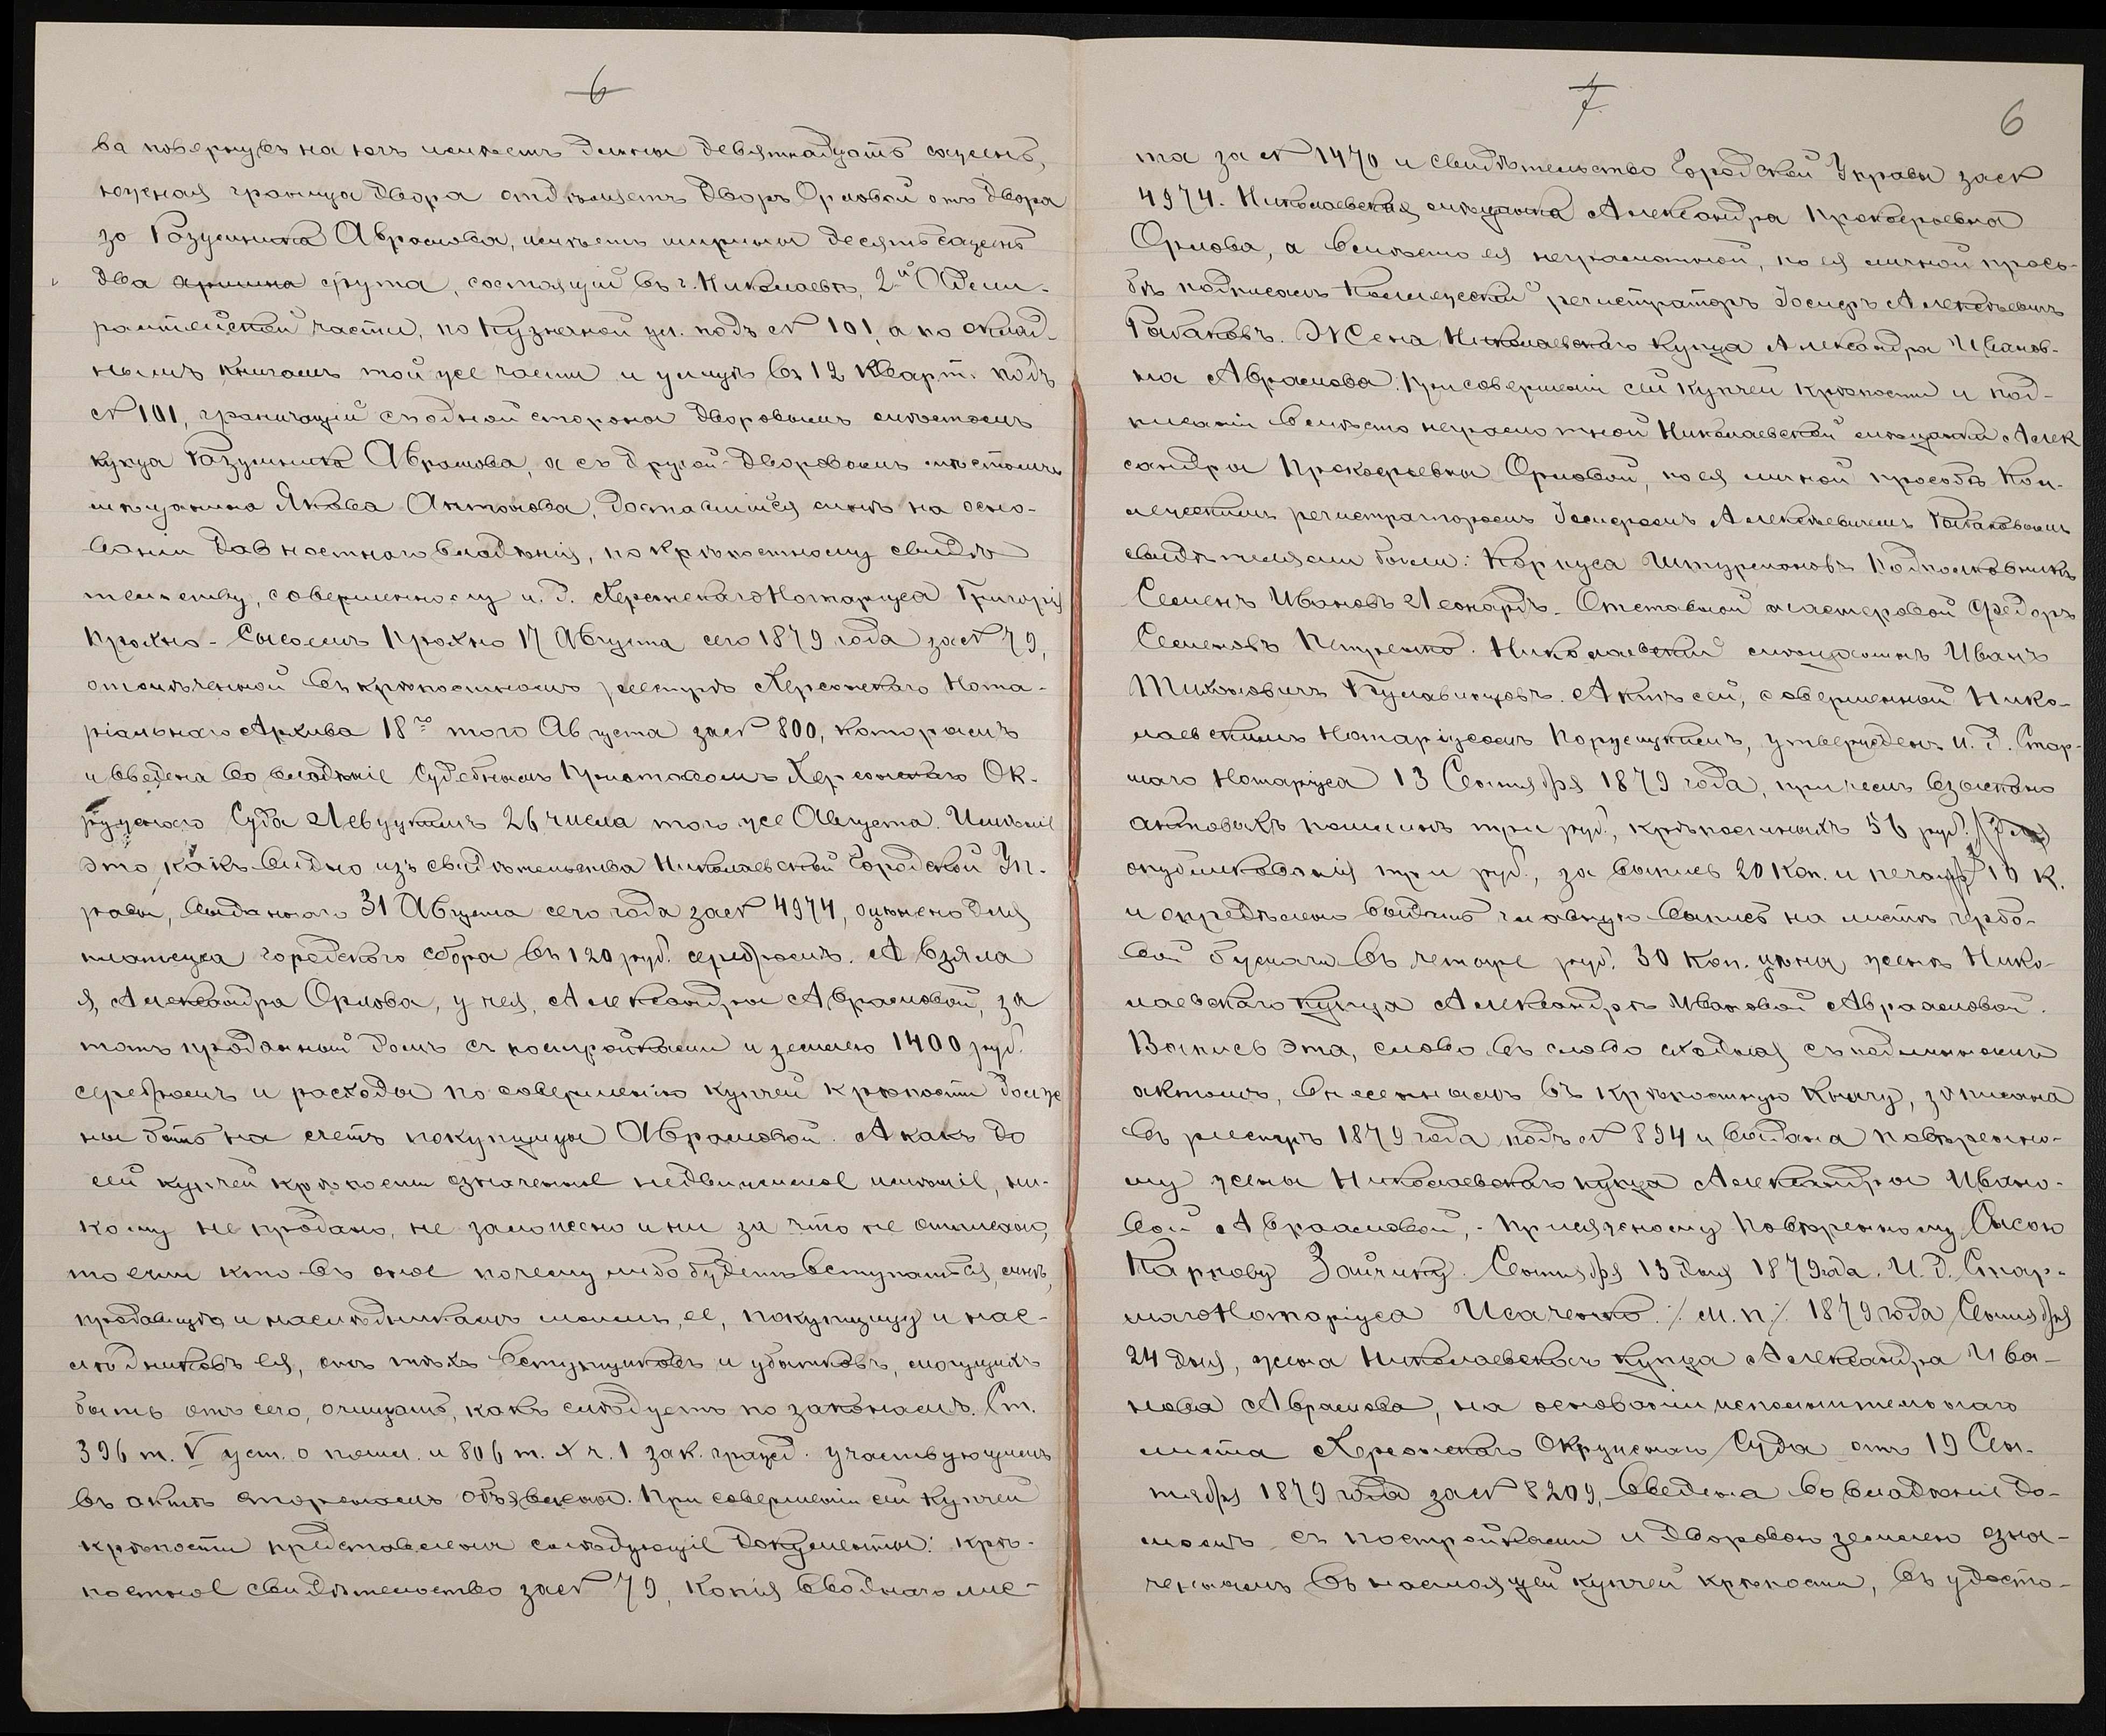 6
ва повернувъ на югъ имѣетъ длины девятнадцать сажень,
южная граница двора отдѣляетъ дворъ Орловой отъ двора
Разумника Аврамова, имѣетъ ширины десять сажень
два аршина фута, состоящій въ г. Николаевѣ, 2й Адми-
ралтейской части, по Кузнечной ул. подъ № 101, а по оклад-
нымъ книгамъ той же части и улицѣ въ 12 кварт. подъ
№ 101, граничащій съ одной стороны дворовымъ мѣстомъ
купца Разумника Абрамова, а съ другой дворовымъ мѣстомъ
мѣщанина Якова Антонова, доставшійся мнѣ на осно-
ваніи давностнаго владѣнія, по крѣпостному свидѣ
тельству, совершенному и. д. Херсонскаго Нотаріуса Григорія
Прохно-Сысоемъ Прохно 17 Августа сего 1879 года за № 79,
отмѣченной въ крѣпостномъ реестрѣ Херсонскаго Нота-
ріальнаго Архива 18го того Августа за № 800, которымъ
и введена во владѣніе Судебнымъ Приставомъ Херсонскаго Ок-
ружнаго Суда Левуцкимъ 26 числа того же Августа. Имѣніе
это, какъ видно изъ свидѣтельства Николаевской Городской Уп-
равы, выданнаго 31 Августа сего года за № 4974, оцѣнено для
платежа городского сбора въ 120 руб. серебромъ. А взяла
я, Александра Орлова, у нея, Александры Аврамовой, за
тотъ проданный домъ съ постройками и землею 1400 руб.
серебромъ и расходы по совершенію купчей крѣпости долж
ны быть на счетъ покупщицы Аврамовой. А какъ до
сей купчей крѣпости означенное недвижимое имѣніе, ни-
кому не продано, не заложено и ни за что не отписано,
то если кто въ оное почему либо будетъ вступаться, мнѣ,
продавщицѣ и наслѣдникамъ моимъ, ее, покупщицу и нас-
лѣдниковъ ея, отъ тѣхъ вступщиковъ и убытковъ, могущихъ
быть отъ сего, очищать, какъ слѣдуетъ по законамъ. Ст.
396 т. V уст. о пошл. и 806 т. X ч. 1 зак. гражд. участвующимъ
въ актѣ сторонамъ объявлены. При совершеніи сей купчей
крѣпости представлены слѣдующіе документы: крѣ-
постное свидѣтельство за № 79, копія вводнаго лис-
7
6
та за № 1470 и свидѣтельство Городской Управы за №
4974. Николаевская мѣщанка Александра Прокофьевна
Орлова, а вмѣсто ея неграмотной, по ея личной прось-
бѣ подписалъ Коллежскій регистраторъ Іосифъ Алексѣевичъ
Рыбаковъ. Жена Николаевскаго купца Александра Иванов-
на Аврамова. При совершеніи сей купчей крѣпости и под-
писаніи вмѣсто неграмотной Николаевской мѣщанки Алек
сандры Прокофьевны Орловой, по ея личной просьбѣ Кол-
лежскимъ регистраторомъ Іосифомъ Алексѣевичемъ Рыбаковымъ
свидѣтелями были: Корпуса Штурмановъ Подполковникъ
Семенъ Ивановъ Леонардъ. Отставной мастеровой Федоръ
Семеновъ Петренко. Николаевскій мѣщанинъ Иванъ
Тихоновичъ Булавинцовъ. Актъ сей, совершенный Нико-
лаевскимъ Нотаріусомъ Поржицкимъ, утвержденъ И. д. Стар-
шаго Нотаріуса 13 Сентября 1879 года, при чемъ взыскано
актовыхъ пошлинъ три руб., крѣпостныхъ 56 руб.,
опубликованія три руб., за выпись 20 коп. и печать 10 к.
и опредѣлено выдать главную выпись на листѣ гербо-
вой бумаги въ четыре руб. 30 коп. цѣны женѣ Нико-
лаевскаго купца Александрѣ Ивановой Авраамовой.
Выпись эта, слово въ слово сходная съ подлиннымъ
актомъ, внесеннымъ въ крѣпостную книгу, записана
въ реестръ 1879 года подъ № 894 и выдана повѣренно-
му жены Николаевскаго купца Александры Ивано-
вой Авраамовой, - присяжному повѣренному Сысою
Карпову Зайчику. Сентября 13 дня 1879 года. И. д. Стар-
шаго Нотаріуса Исаченко. /. м. п. /. 1879 года Сентября
24 дня, жена Николаевскаго купца Александра Ива-
нова Аврамова, на основаніи исполнительнаго
листа Херсонскаго Окружнаго Суда отъ 19 Сен-
тября 1879 года за № 8209, введена во владѣніе до-
момъ съ постройками и дворовою землею озна-
ченнымъ въ настоящей купчей крѣпости, въ удосто-